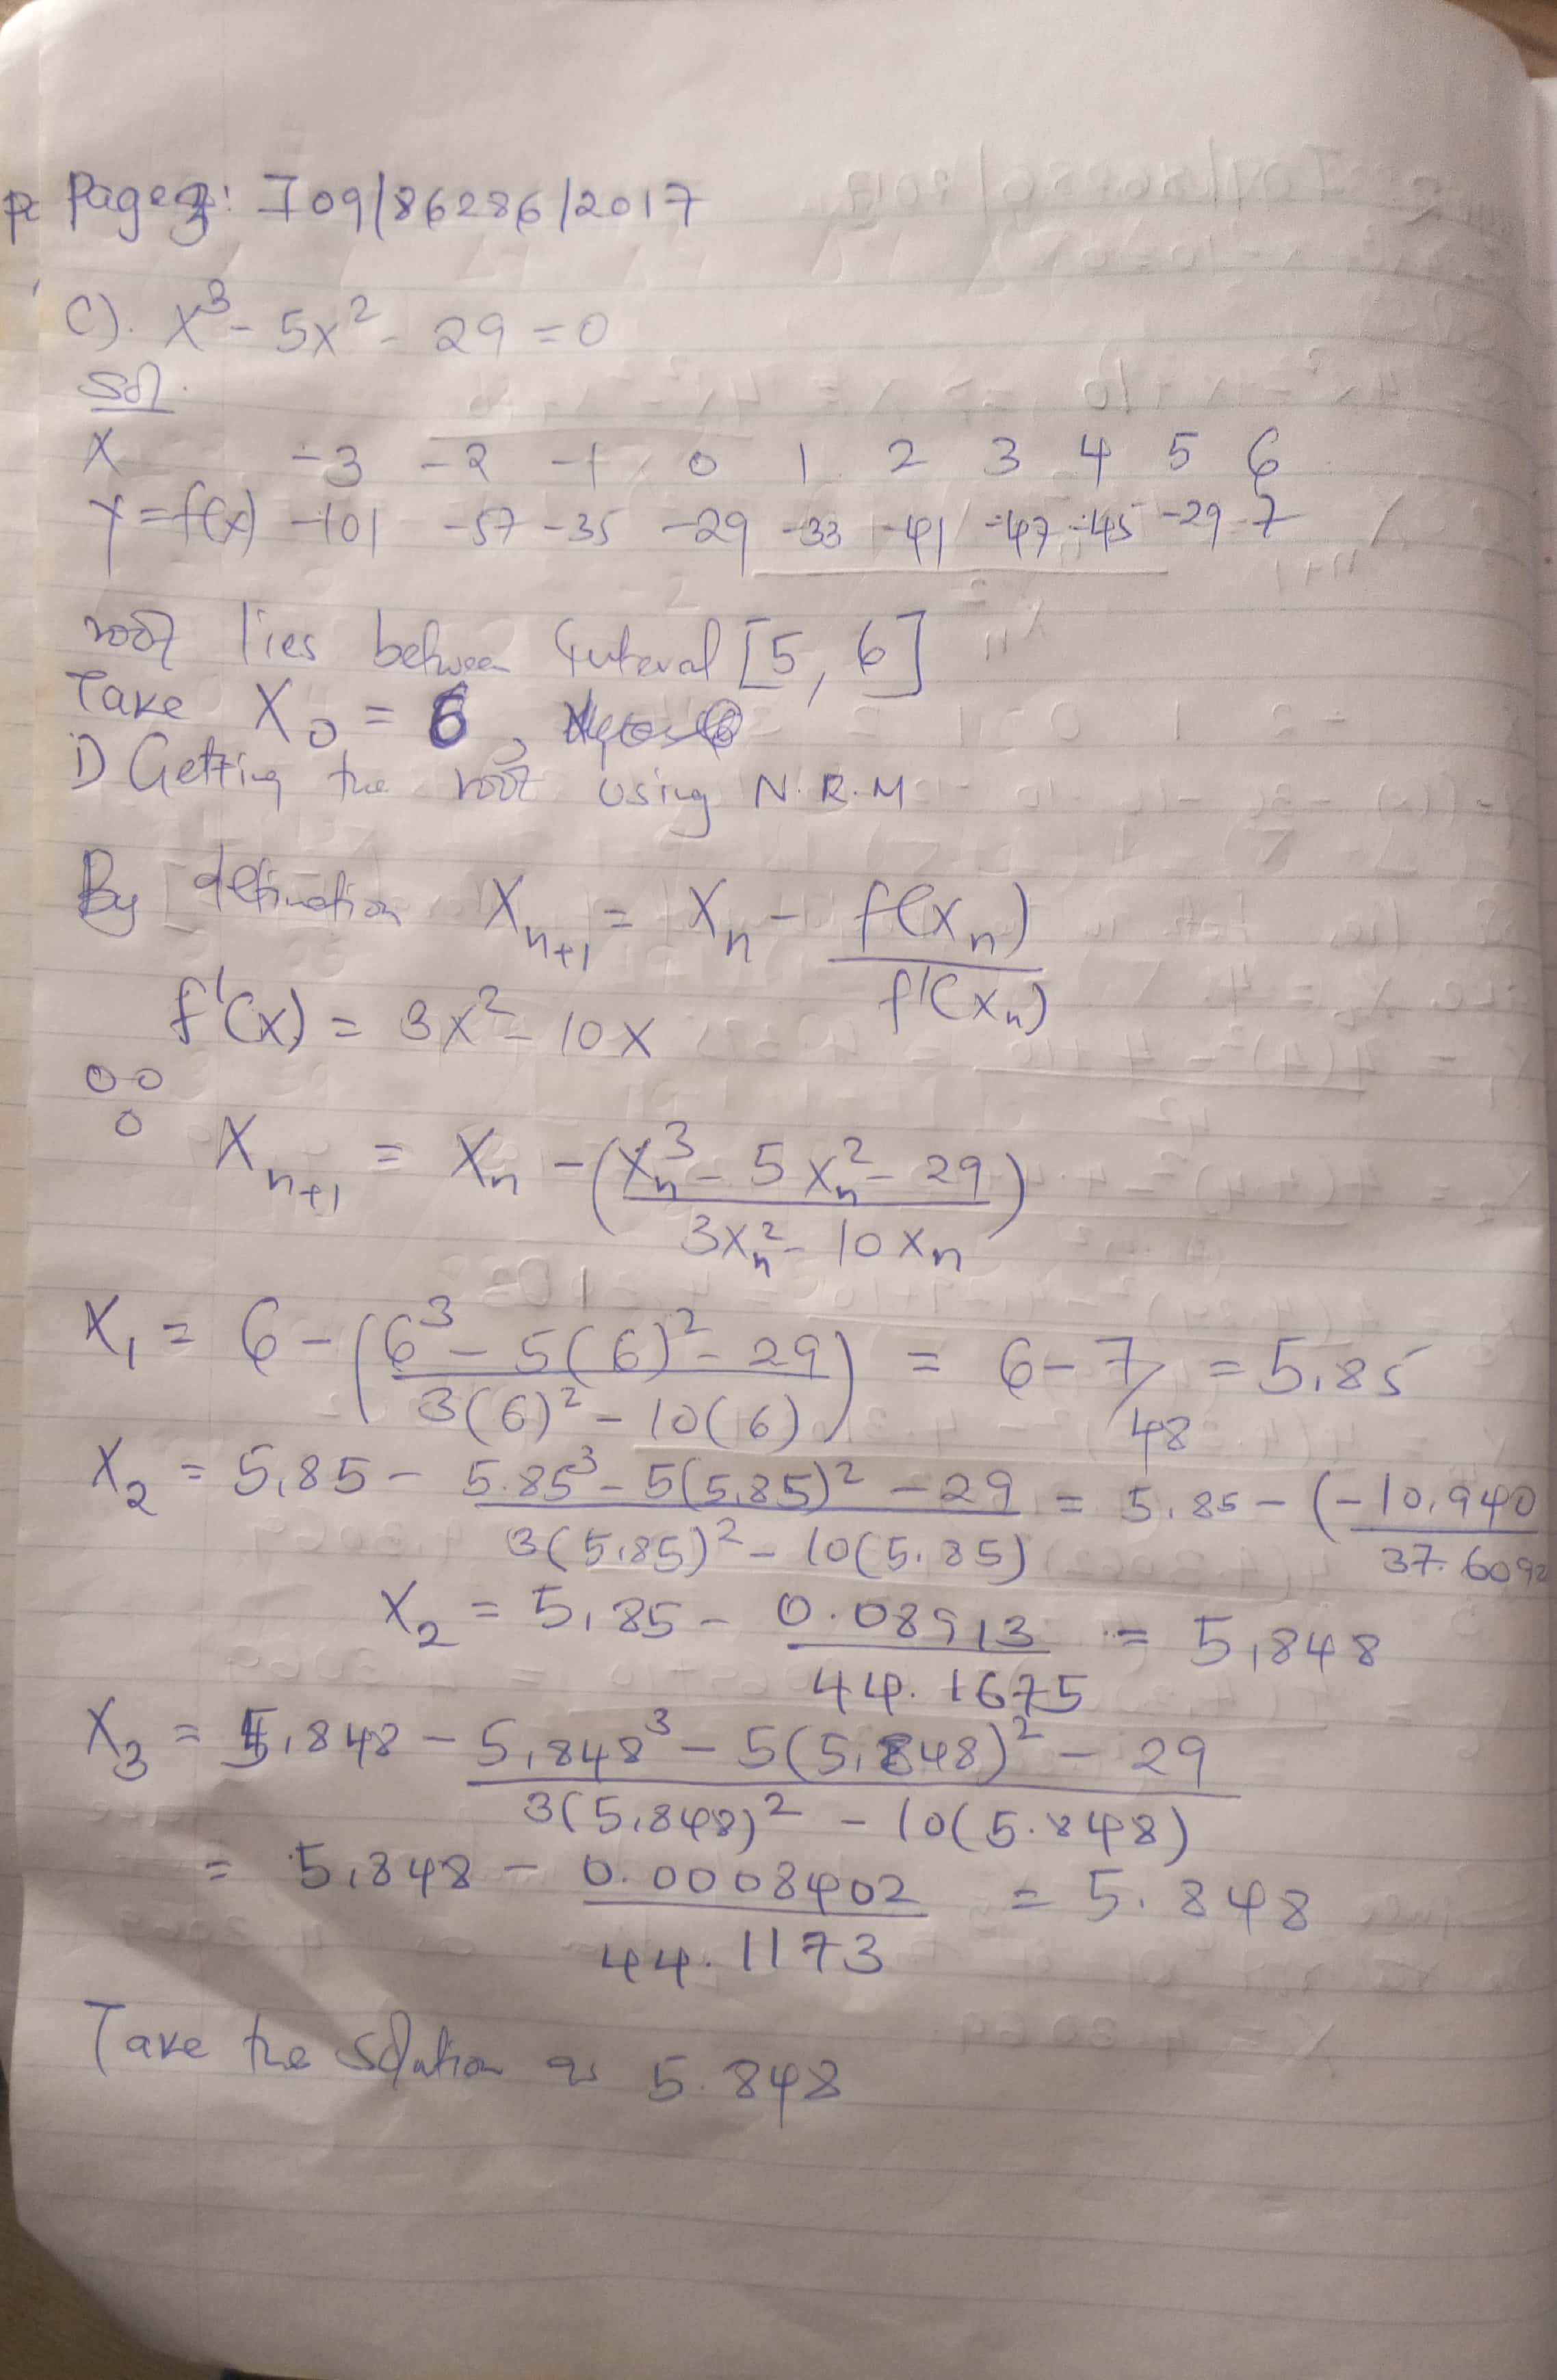 Page 3: I09/86286/2017
C). x³ - 5x² - 29 = 0
Sol.
X -3 -2 -1 0 1 2 3 4 5 6
Y = f(x) -101 -57 -35 -29 -33 -41 -47 -45 -29 7
root lies between interval [5, 6]
Take X₀ = 6,
i) Getting the root using N.R.M
By defination Xₙ₊₁ = Xₙ - f(Xₙ) / f'(Xₙ)
f'(x) = 3x² - 10x
∴ Xₙ₊₁ = Xₙ - (Xₙ³ - 5Xₙ² - 29 / 3Xₙ² - 10Xₙ)
X₁ = 6 - (6³ - 5(6)² - 29 / 3(6)² - 10(6)) = 6 - 7/48 = 5.85
X₂ = 5.85 - 5.85³ - 5(5.85)² - 29 / 3(5.85)² - 10(5.85) = 5.85 - (-10.940 / 37.6092
X₂ = 5.85 - 0.08913 / 44.1675 = 5.848
X₃ = 5.848 - 5.848³ - 5(5.848)² - 29 / 3(5.848)² - 10(5.848)
= 5.848 - 0.0008402 / 44.1173 = 5.848
Take the solution as 5.848